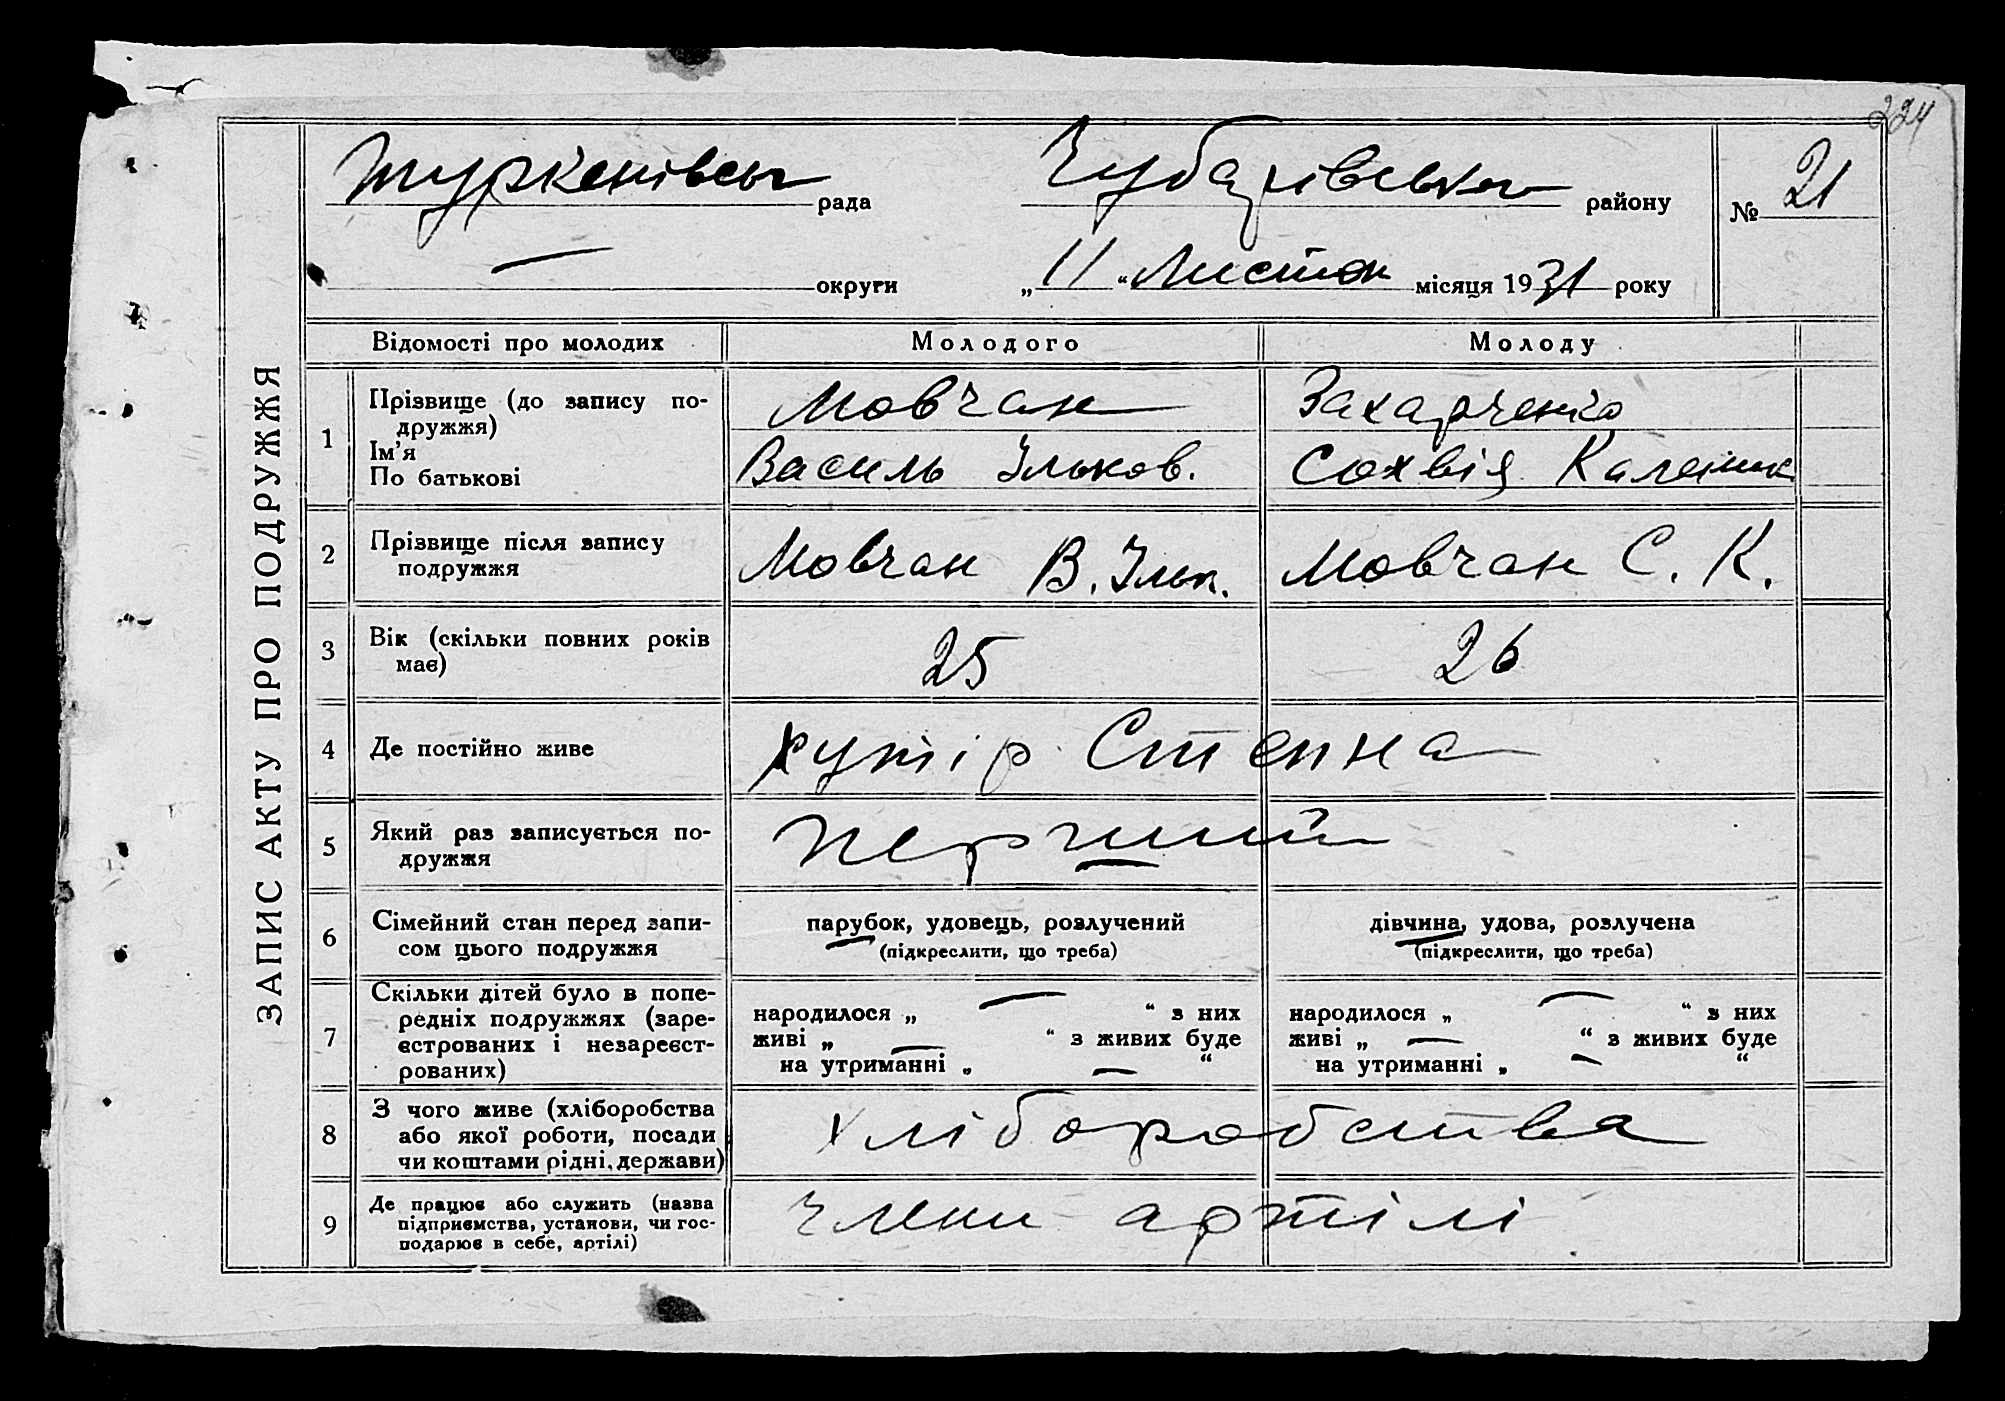 224
Туркенівськ рада Чубарівського району № 21
— округи „11“ Листоп місяця 1931 року
ЗАПИС АКТУ ПРО ПОДРУЖЖЯ
Відомості про молодих Молодого Молоду
1 Прізвище (до запису по-
дружжя)
Ім'я
По батькові
Мовчан
Василь Ільков.
Захарченко
Сохвія Каленик.
2 Прізвище після запису
подружжя
Мовчан В. Ільк.
Мовчан С. К.
3 Вік (скільки повних років
має)
25
26
4 Де постійно живе
хутір Степна
5 Який раз записується по-
дружжя
перший
6 Сімейний стан перед запи-
сом цього подружжя
парубок, удовець, розлучений
(підкреслити, що треба)
дівчина, удова, розлучена
(підкреслити, що треба)
7 Скільки дітей було в попе-
редніх подружжях (заре-
єстрованих і незареєст-
рованих)
народилося „ — “ з них
живі „ — “ з живих буде
на утриманні „ — “
народилося „ — “ з них
живі „ — “ з живих буде
на утриманні „ — “
8 З чого живе (хліборобства
або якої роботи, посади
чи коштами рідні, держави)
хліборобства
9 Де працює або служить (назва
підприємства, установи, чи гос-
подарює в себе, артілі)
члени артілі